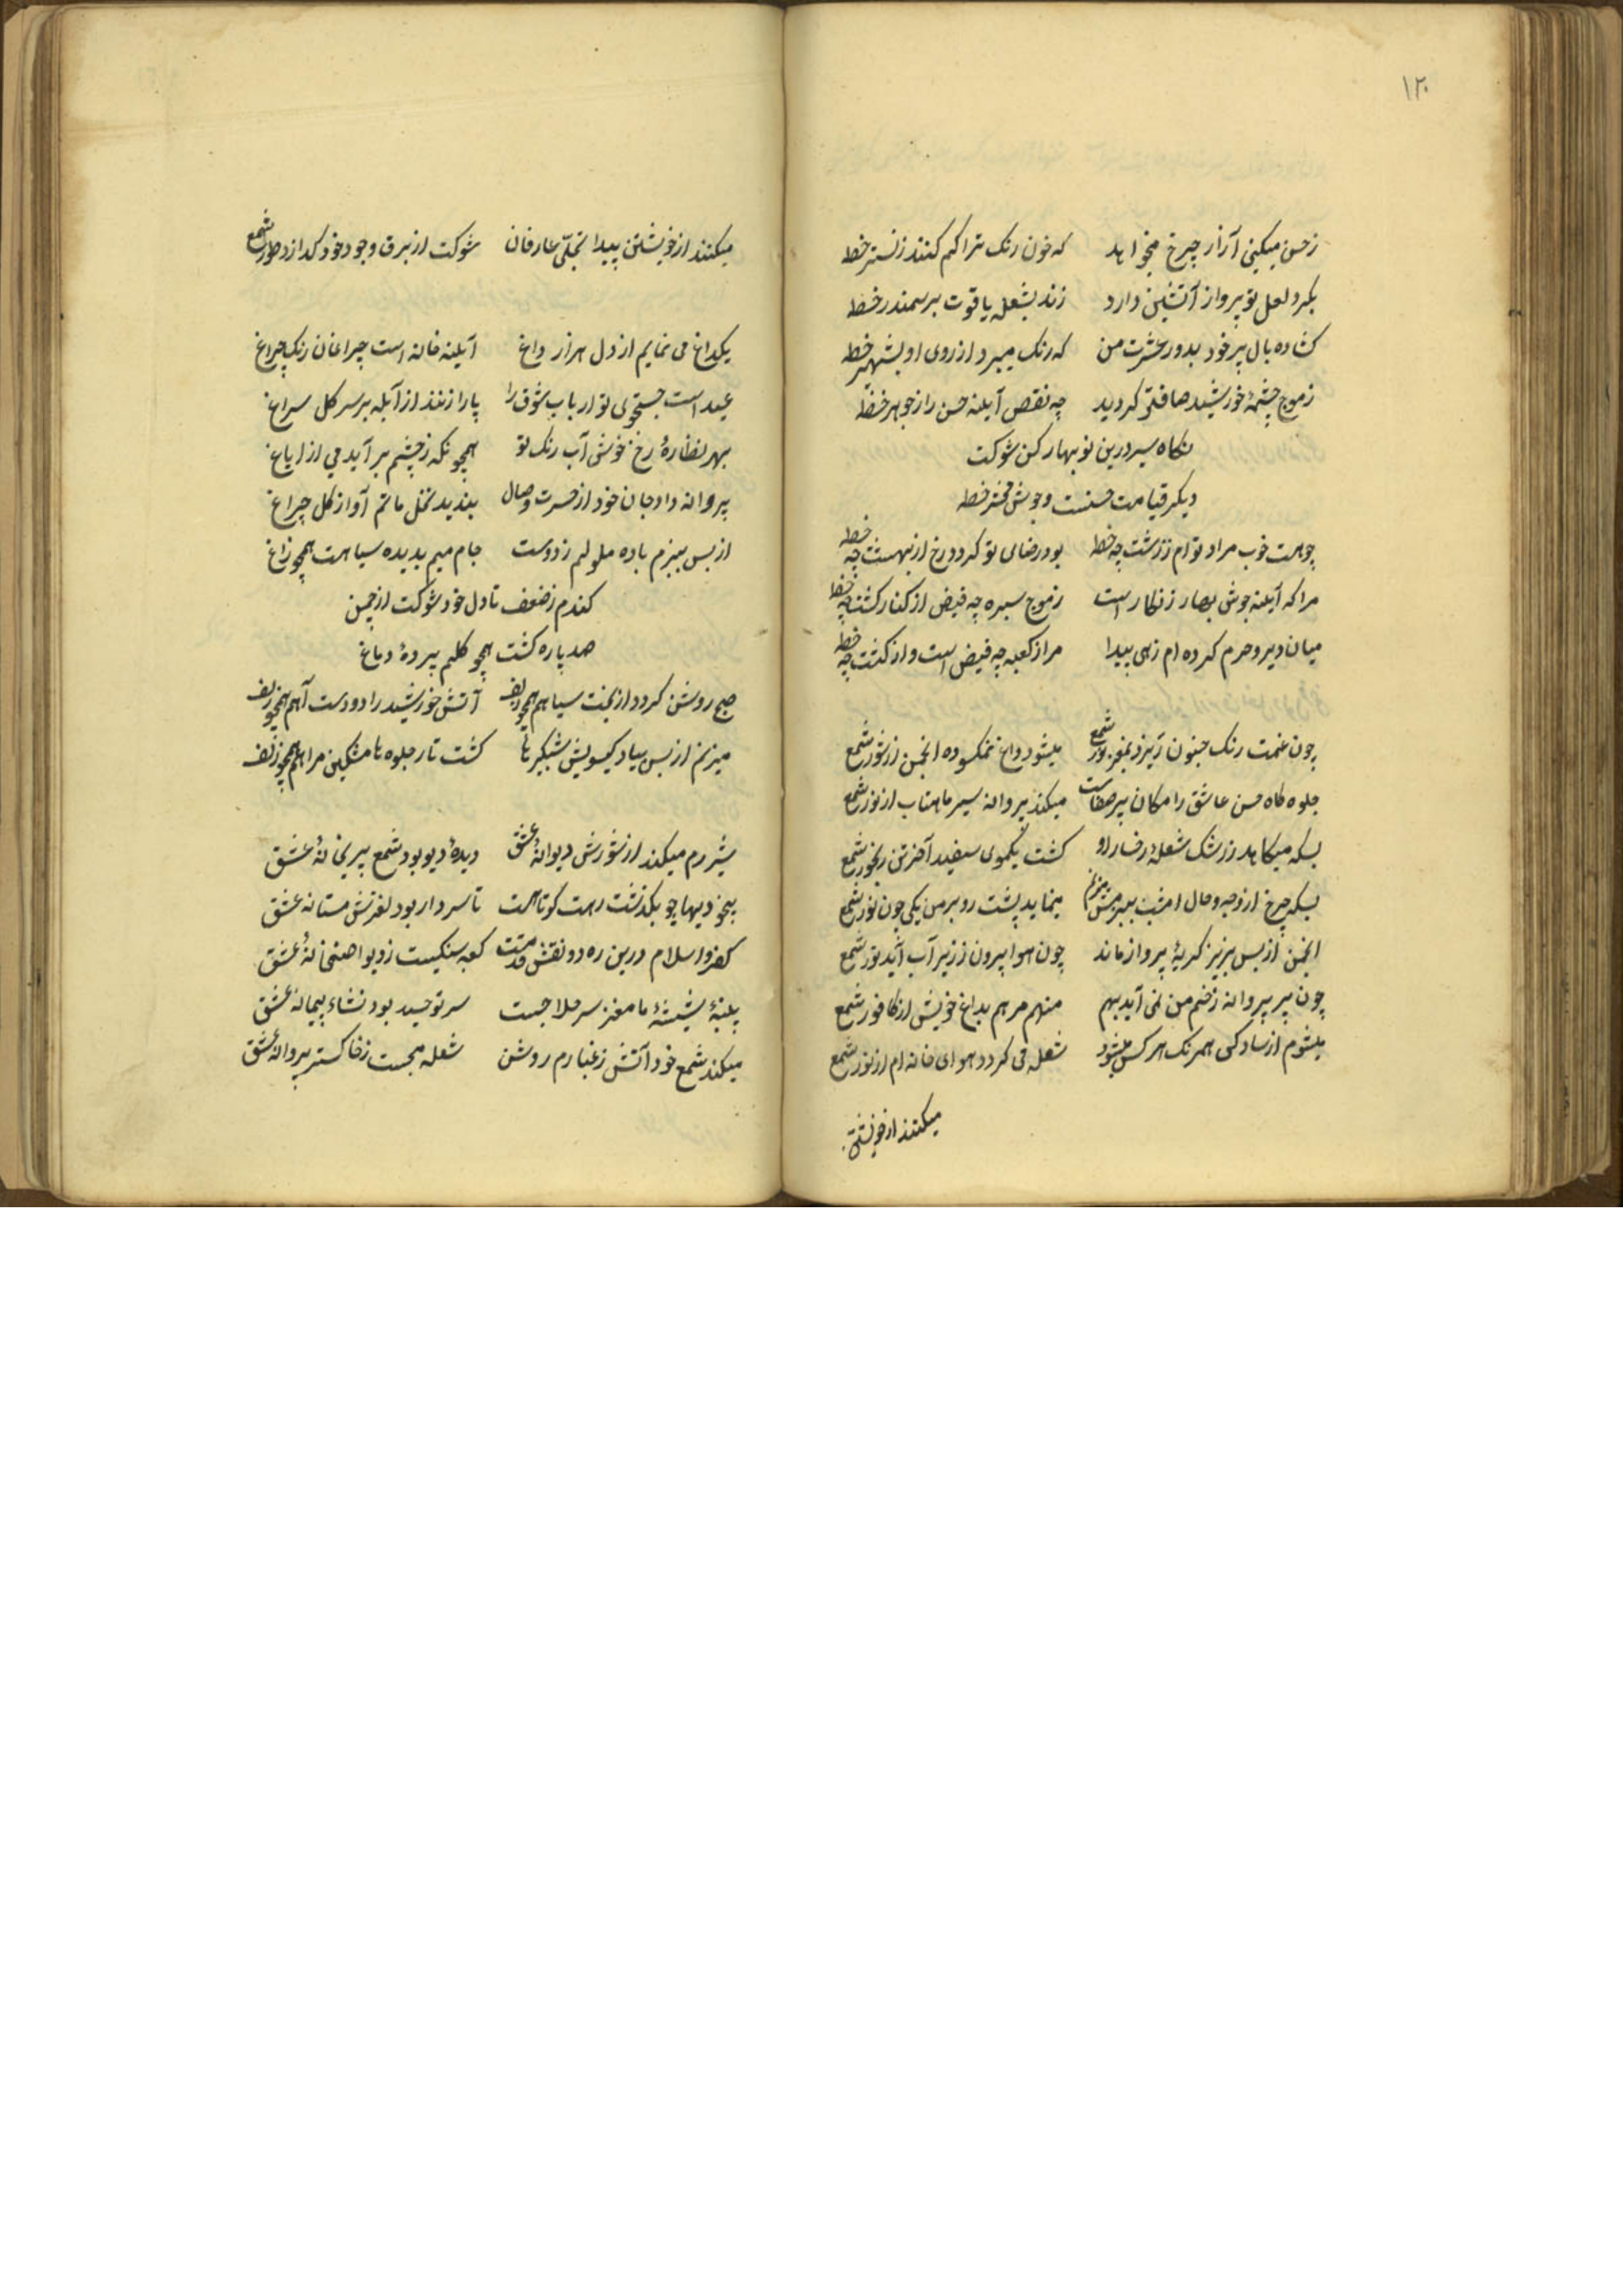 ۱۲۰
ز حسن میکنی آزار چرخ میخواهد که خون رنک ترا کم کنند ز نشتر خط
بکرد لعل تو پرواز آتشین دارد زند بشعله یاقوت بر سمندر خط
کشاده بال پر خود بدور عشرت من که رنک میبرد از روی او بشهپر خط
ز موج چشمهٔ خورشید صافتی کردید چه نقص آینه حسن را ز جوهر خط
نکاه سیر درین نوبهار کن شوکت
دیکر قیامت حسنست و جوش محشر خط
چو هست خوب مراد توام ز زشت چه خط بود رضای تو کر دوزخ از بهشت چه خط
مرا که آینه جوش بهار زنکار است ز موج سبزه چه فیض از کنار کشت چه خط
میان دیر و حرم کرده ام رهی پیدا مرا ز کعبه چه فیض است و از کنشت چه خط
چون غمت رنک جنون ریزد بمغز شمع میشود داغ نمکسوده انجمن از شور شمع
جلوه کاه حسن عاشق را مکان پر صفاست میکند پروانه سیر ماهتاب از نور شمع
بسکه میکاهد ز رشک شعلهٔ رخسار او کشت یکموی سفید آخر تن رنجور شمع
بسکه چرخ از وجد و حال امشب ببزمش میزنم مینماید پشت رو بر من یکی چون نور شمع
انجمن از بس لبریز کریهٔ پرواز ماند چون هوا بیرون ز زیر آب آید نور شمع
چون پر پروانه زخم من نمی آید بهم منهم مرهم بداغ خویش از کافور شمع
میشوم از سادکی همرنک هر کس میشود شعله می کردد هوای خانه ام از نور شمع
میکنند از خویشتن
میکنند از خویشتن پیدا تجلّی عارفان شوکت از برق وجود خود کدازد طور شمع
یکداغ می نمایم از دل هزار داغ آینه خانه است چراغان رنک چراغ
عید است جستجوی تو ارباب شوق را پا را زنند از آبله بر سر کل سراغ
بهر نظارهٔ رخ خوش آب رنک تو همچو نکه ز چشم بر آید می از ایاغ
پروانه داد جان خود از حسرت وصال بندید نخل ماتم آواز کل چراغ
از بس ببزم باده ملولم ز دوست جام میم بدیده سیاهست همچو زاغ
کندم ز ضعف تا دل خود شوکت از چمن
صد پاره کشت همچو کلم پردهٔ دماغ
صبح روشن کردد از بخت سیاهم همچو زلف آتش خورشید را دودست آهم همچو زلف
میزنم از بس بیاد کیسویش شبکیر ها کشت تار جلوه ها مشکین مراهم همچو زلف
شیر رم میکند از شورش دیوانهٔ عشق دیدهٔ دیو بود شمع پریخانهٔ عشق
بیخودیها چو بکذشت رهت کوتاهست تا سر دار بود لغزش مستانه عشق
کفر و اسلام درین ره دو نقش قدمت کعبه سنکیست ز دیوا صنمخانهٔ عشق
پنبهٔ شیشهٔ ما مغز سر حلاجست سر توحید بود نشاء پیمانه عشق
میکند شمع خود آتش ز غبارم روشن شعله میجست ز خاکستر پروانهٔ عشق